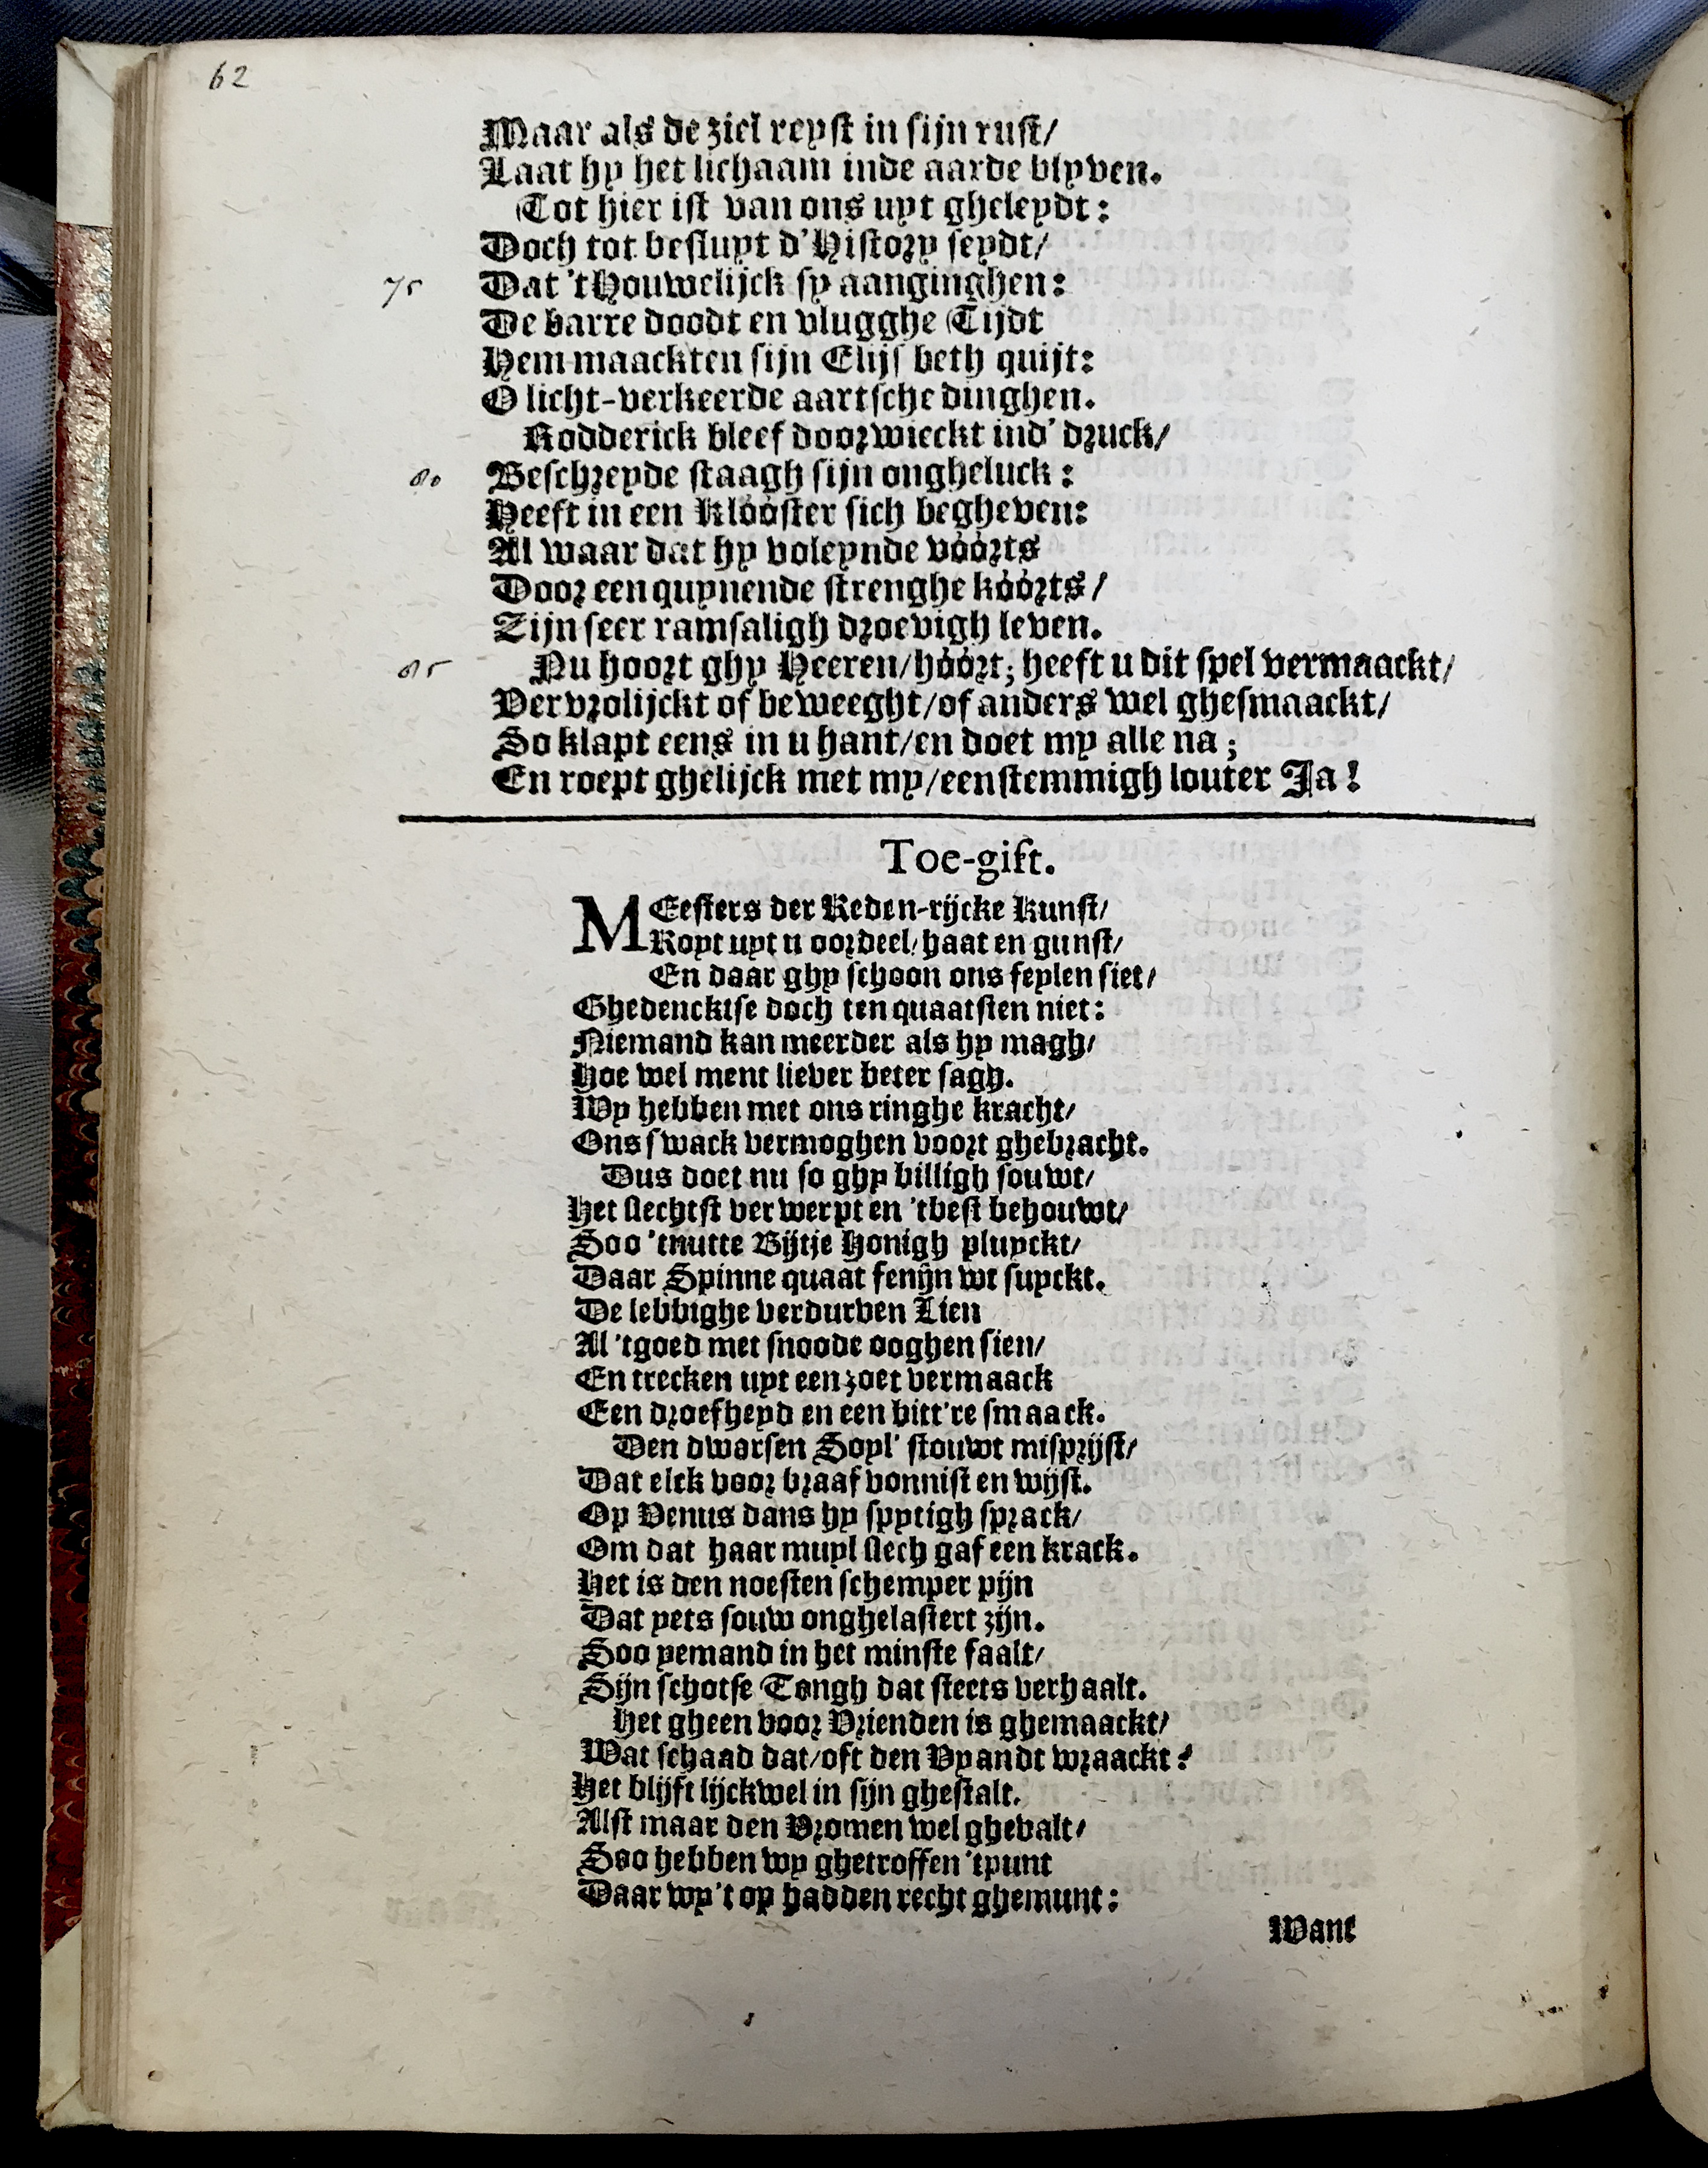 62
Maar als de ziel reyst in sijn rust/
Laat hy het lichaam inde aarde blyven.
Tot hier ist van ons uyt gheleydt:
Doch tot besluyt d'History seydt/
75 Dat 'tHouwelijck sy aanginghen:
De barre doodt en vlugghe Tijdt
Hem maackten sijn Elijs beth quijt:
O licht-verkeerde aartsche dinghen.
Rodderick bleef doorwieckt ind' druck/
80 Beschreyde staagh sijn ongheluck:
Heeft in een Klóóster sich begheven:
Al waar dat hy voleynde vóórts
Door een quynende strenghe kóórts/
Zijn seer ramsaligh droevigh leven.
85 Nu hoort ghy Heeren/hóórt; heeft u dit spel vermaackt/
Vervrolijckt of beweeght/of anders wel ghesmaackt/
So klapt eens in u hant/en doet my alle na;
En roept ghelijck met my/eenstemmigh louter Ja!
Toe-gift.
MEesters der Reden-rijcke Kunst/
Royt uyt u oordeel/haat en gunst/
En daar ghy schoon ons feylen siet/
Ghedencktse doch ten quaatsten niet:
Niemand kan meerder als hy magh/
Hoe wel ment liever beter sagh.
Wy hebben met ons ringhe kracht/
Ons swack vermoghen voort ghebracht.
Dus doet nu so ghy billigh souwt/
Het slechtst verwerpt en 'tbest behouwt/
Soo 'tnutte Bijtje Honigh pluyckt/
Daar Spinne quaat fenijn wt suyckt.
De lebbighe verdurven Lien
Al 'tgoed met snoode ooghen sien/
En trecken uyt een zoet vermaack
Een droefheyd en een bitt're smaack.
Den dwarsen Soyl' stouwt misprijst/
Dat elck voor braaf vonnist en wijst.
Op Venus dans hy spytigh sprack/
Om dat haar muyl slech gaf een krack.
Het is den noesten schemper pijn
Dat yets souw onghelastert zijn.
Soo yemand in het minste faalt/
Sijn schotse Tongh dat steets verhaalt.
Het gheen voor Vrienden is ghemaackt/
Wat schaad dat/oft den Vyandt wraackt?
Het blijft lijckwel in sijn ghestalt.
Alst maar den Vromen wel ghevalt/
Soo hebben wy ghetroffen 'tpunt
Daar wy't op hadden recht ghemunt:
Want